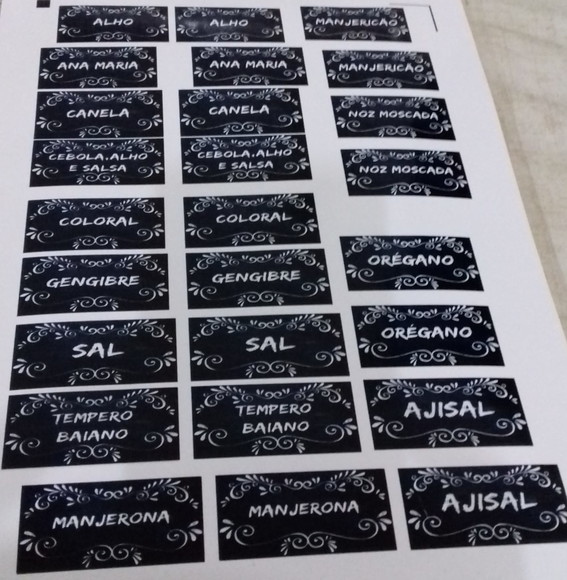 ALHO
ALHO
MANJERICÃO
ANA MARIA
ANA MARIA
MANJERICÃO
CANELA
CANELA
NOZ MOSCADA
CEBOLA, ALHO
E SALSA
CEBOLA, ALHO
E SALSA
NOZ MOSCADA
COLORAL
COLORAL
ORÉGANO
GENGIBRE
GENGIBRE
ORÉGANO
SAL
SAL
AJISAL
TEMPERO
BAIANO
TEMPERO
BAIANO
AJISAL
MANJERONA
MANJERONA